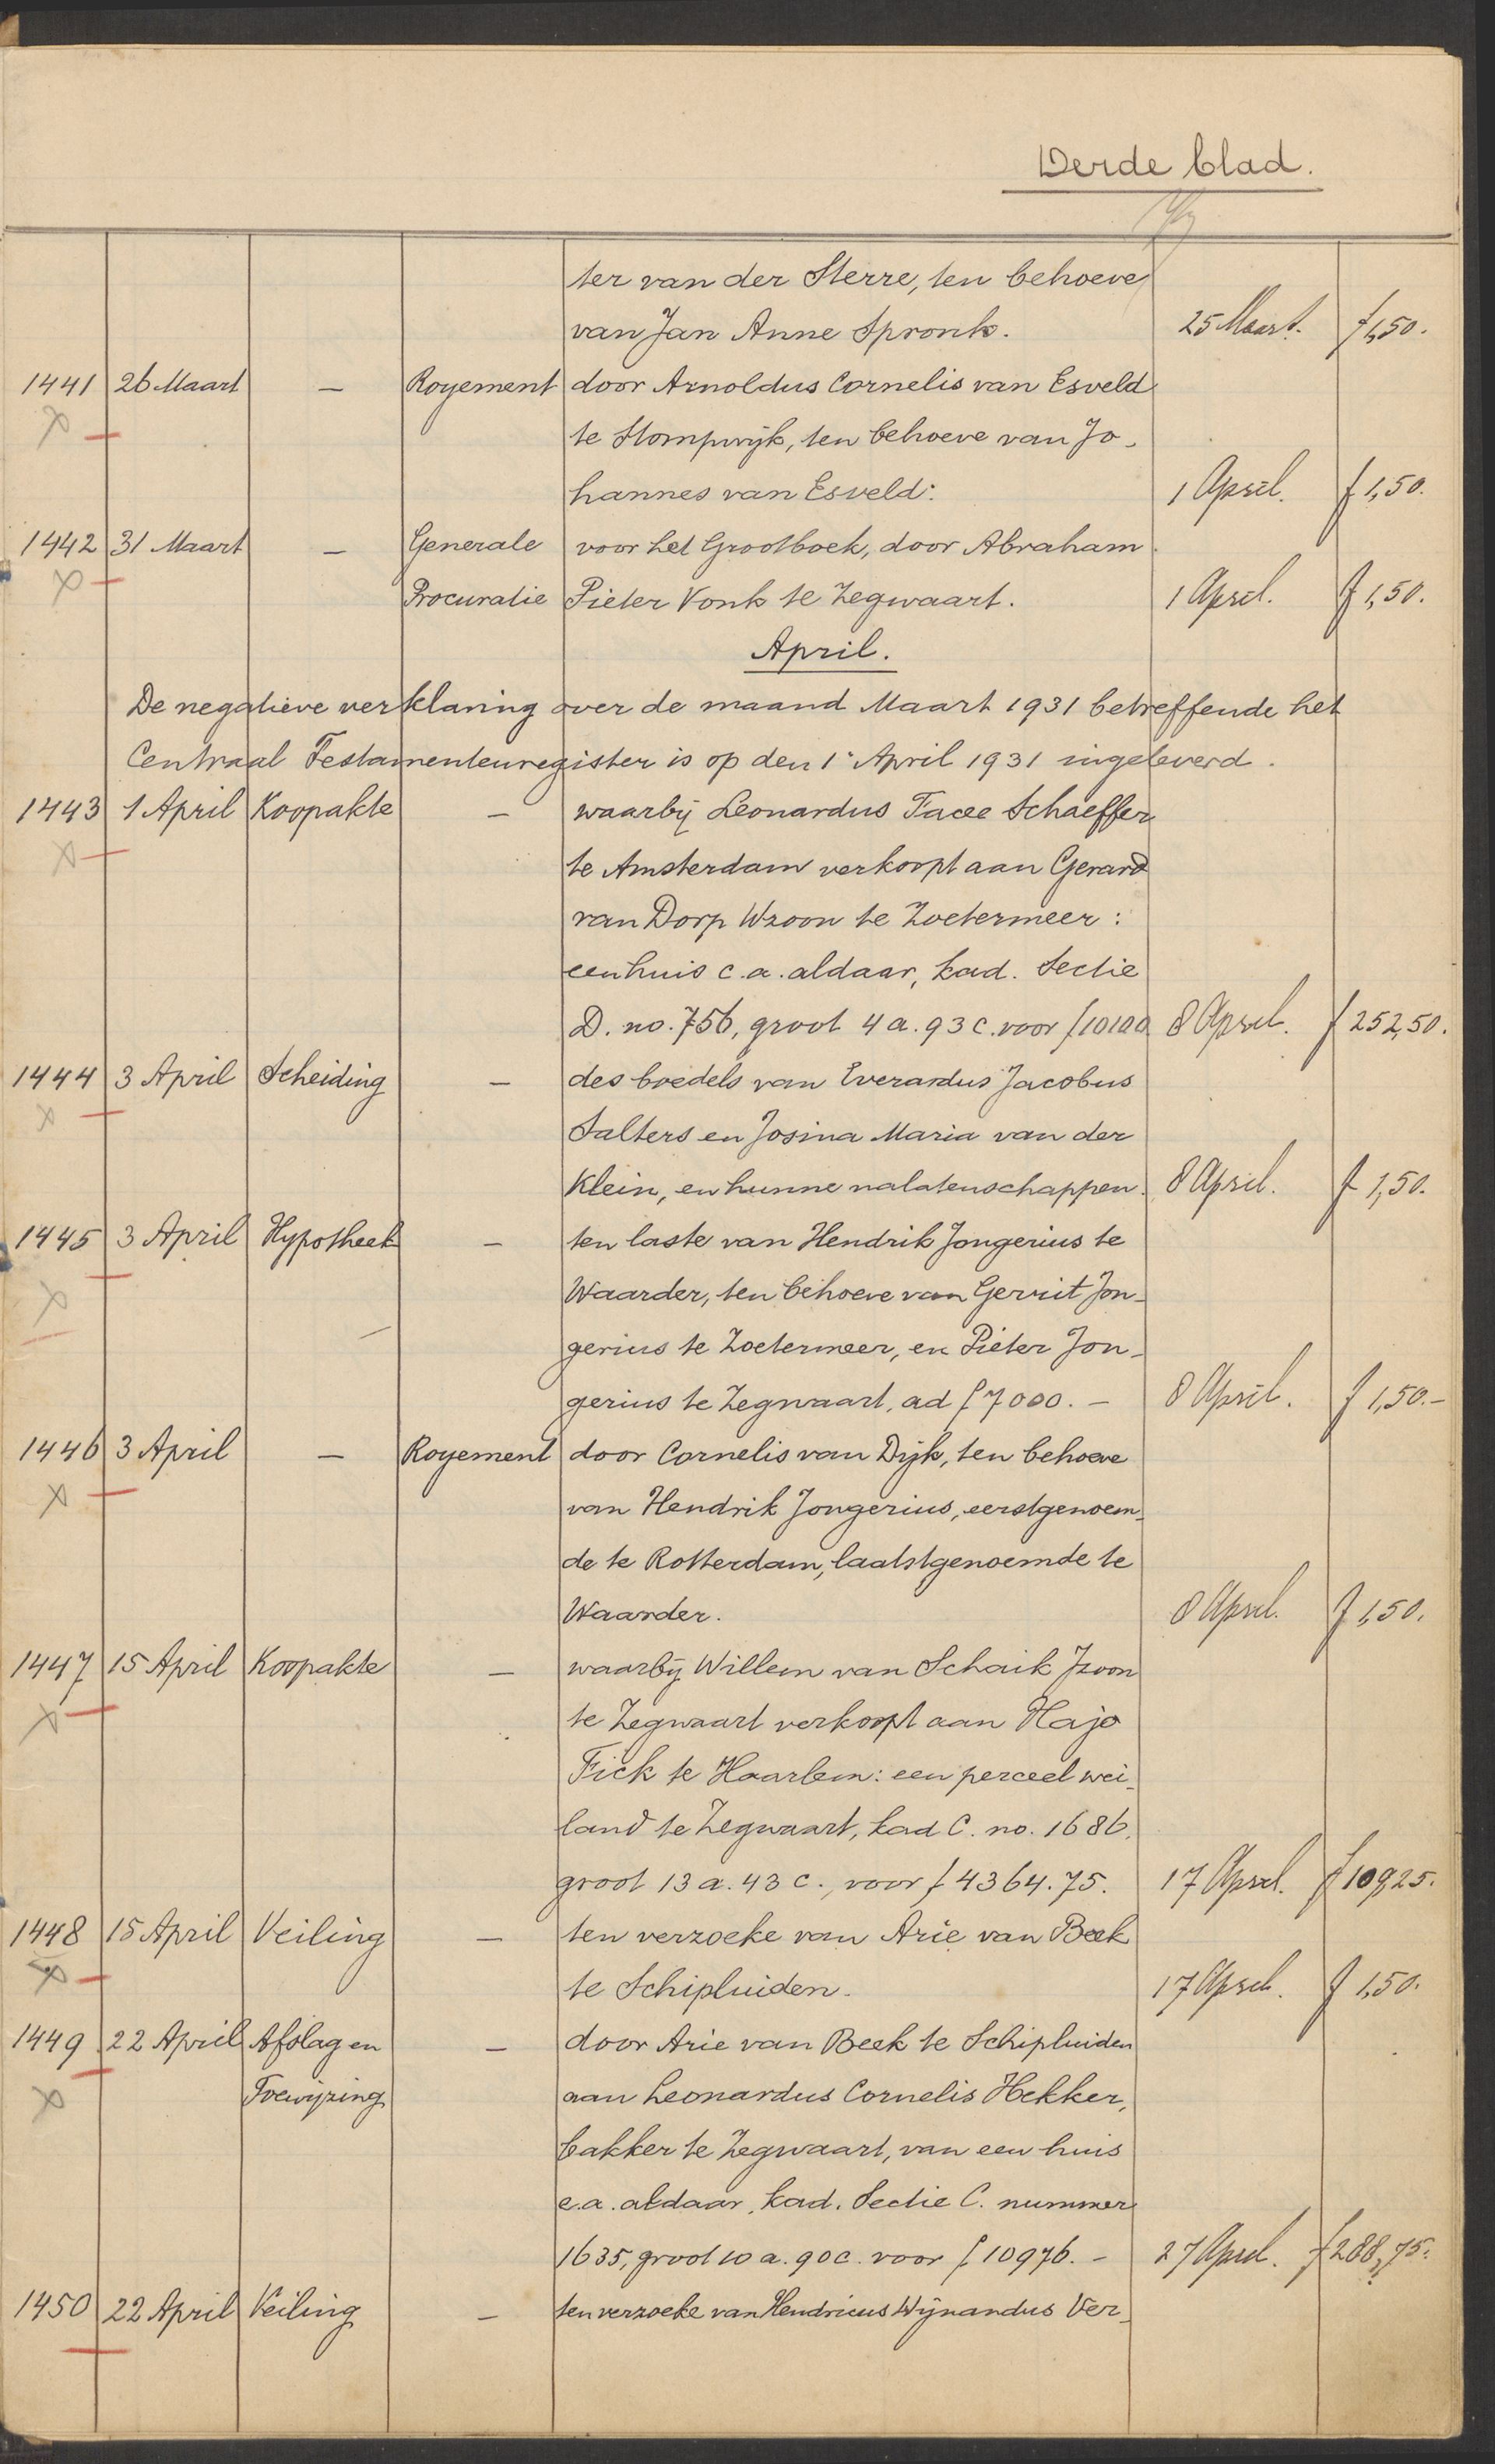 Derde blad.
ter van der Sterre, ten behoeve
van Jan Anne Spronk. 25 Maart. f 1,50.
1441 26 Maart — Royement door Arnoldus Cornelis van Esveld
te Stompwijk, ten behoeve van Jo-
hannes van Esveld. 1 April. f 1,50.
1442 31 Maart — Generale voor het Grootboek, door Abraham
Procuratie Pieter Vonk te Zegwaart. 1 April. f 1,50.
April.
De negatieve verklaring over de maand Maart 1931 betreffende het
Centraal Testamentenregister is op den 1e April 1931 ingeleverd.
1443 1 April Koopakte — waarbij Leonardus Facee Schaeffer
te Amsterdam verkoopt aan Gerard
van Dorp Wzoon te Zoetermeer:
een huis c.a. aldaar, kad. Sectie
D. no. 756, groot 4 a. 93 c. voor f 10100 8 April. f 252,50.
1444 3 April Scheiding — des boedels van Everardus Jacobus
Salters en Josina Maria van der
Klein, en hunne nalatenschappen. 8 April. f 1,50.
1445 3 April Hypotheek — ten laste van Hendrik Jongerius te
Waarder, ten behoeve van Gerrit Jon-
gerius te Zoetermeer, en Pieter Jon-
gerius te Zegwaart, ad f 7000.- 8 April. f 1,50.-
1446 3 April — Royement door Cornelis van Dijk, ten behoeve
van Hendrik Jongerius, eerstgenoem-
de te Rotterdam, laatstgenoemde te
Waarder. 8 April. f 1,50.
1447 15 April Koopakte — waarbij Willem van Schaik Jzoon
te Zegwaart verkoopt aan Hajo
Fick te Haarlem: een perceel wei-
land te Zegwaart, kad C. no. 1686,
groot 13 a. 43 c., voor f 4364.75. 17 April. f 109,25.
1448 15 April Veiling — ten verzoeke van Arie van Beek
te Schipluiden. 17 April. f 1,50.
1449 22 April Afslag en — door Arie van Beek te Schipluiden
Toewijzing aan Leonardus Cornelis Hekker,
bakker te Zegwaart, van een huis
c.a. aldaar, kad. Sectie C. nummer
1635, groot 10 a. 90 c. voor f 10976.- 27 April. f 288,75.
1450 22 April Veiling — ten verzoeke van Hendricus Wijnandus Ver-